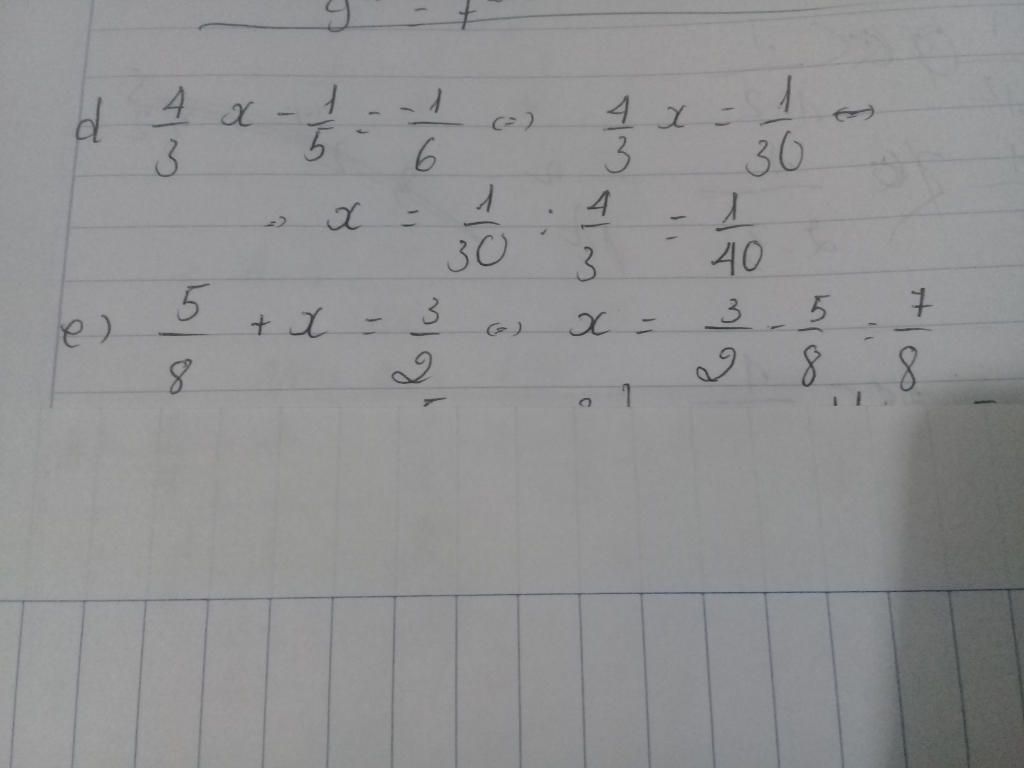 d 4/3 x - 1/5 = -1/6 (=) 4/3 x = 1/30 <=>
=> x = 1/30 : 4/3 = 1/40
e) 5/8 + x = 3/2 (=) x = 3/2 - 5/8 = 7/8